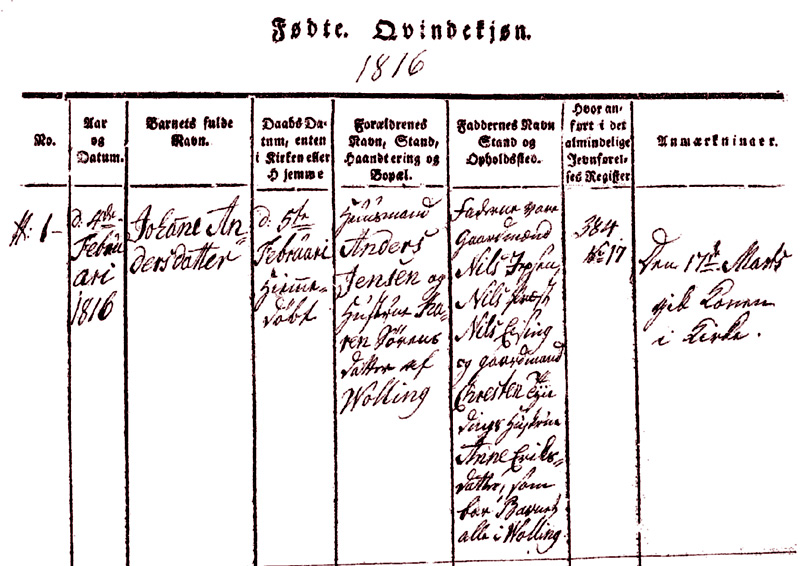 Fødte. Qvindekjøn.
1816
No.
Aar
og
Datum.
Barnets fulde
Navn.
Daabs Da-
tum, enten
i Kirken eller
Hjemme
Forældrenes
Navn, Stand,
Haandtering og
Bopæl.
Faddernes Navn
Stand og
Opholdssted.
Hvor an-
ført i det
almindelige
Jevnførel-
ses Register
Anmærkninger.
N: 1-
d: 4de
Febru
ari
1816
Johane An-
dersdatter
d: 5te
Februari
Hjemme-
döbt
Huusmand
Anders
Jensen og
Hustrue Ka-
ren Sörens
datter af
Wolling
Faderne vare
Gaardmænd
Nils Jepsen,
Nils
Nils Eising
og gaardmand
Chresten Tÿe
dings Hustrue
Anne Eriks-
datter, som
bar Barnet
alle i Wolling
384
No 17
Den 17de Marts
gik Konen
i Kirke.